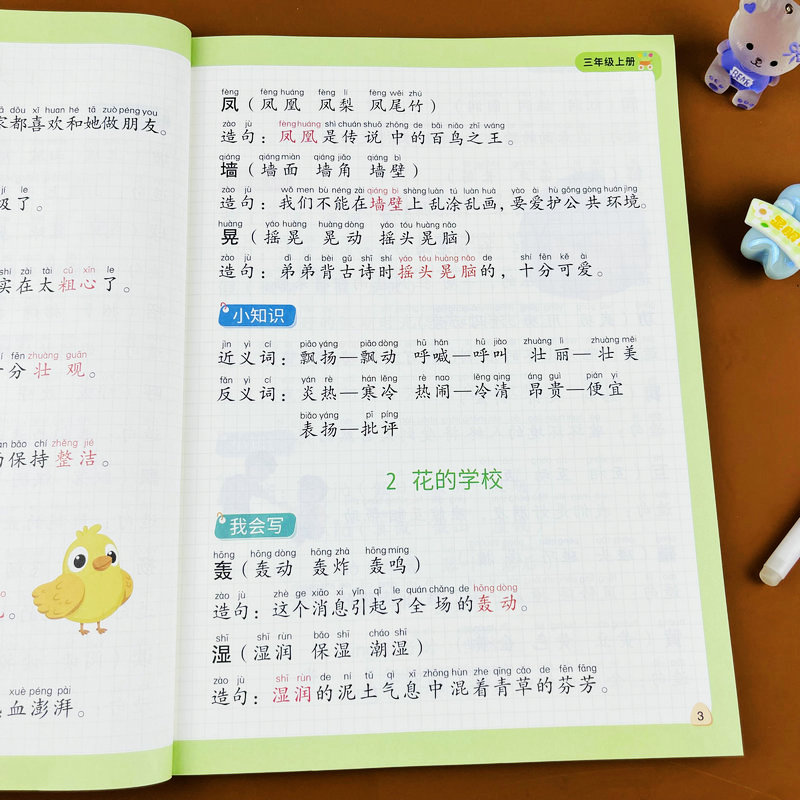 ā dōu xǐ huan hé tā zuò péng you
家都喜欢和她做朋友。
jí le
级了。
shí zài tài cū xīn le
实在太粗心了。
fēn zhuàng guān
分壮观。
bǎo chí zhěng jié
保持整洁。
xuè péng pài
血澎湃。
三年级上册
fèng fèng huáng fèng lí fèng wěi zhú
凤（凤凰 凤梨 凤尾竹）
zào jù fèng huáng shì chuán shuō zhōng de bǎi niǎo zhī wáng
造句：凤凰是传说中的百鸟之王。
qiáng qiáng miàn qiáng jiǎo qiáng bì
墙（墙面 墙角 墙壁）
zào jù wǒ men bù néng zài qiáng bì shàng luàn tú luàn huà yào ài hù gōng gòng huán jìng
造句：我们不能在墙壁上乱涂乱画，要爱护公共环境。
huàng yáo huàng huàng dòng yáo tóu huàng nǎo
晃（摇晃 晃动 摇头晃脑）
zào jù dì di bèi gǔ shī shí yáo tóu huàng nǎo de shí fēn kě ài
造句：弟弟背古诗时摇头晃脑的，十分可爱。
小知识
jìn yì cí piāo yáng piāo dòng hū hǎn hū jiào zhuàng lì zhuàng měi
近义词：飘扬—飘动 呼喊—呼叫 壮丽—壮美
fǎn yì cí yán rè hán lěng rè nao lěng qīng áng guì pián yi
反义词：炎热—寒冷 热闹—冷清 昂贵—便宜
biǎo yáng pī píng
表扬—批评
2 花的学校
我会写
hōng hōng dòng hōng zhà hōng míng
轰（轰动 轰炸 轰鸣）
zào jù zhè ge xiāo xi yǐn qǐ le quán chǎng de hōng dòng
造句：这个消息引起了全场的轰动。
shī shī rùn bǎo shī cháo shī
湿（湿润 保湿 潮湿）
zào jù shī rùn de ní tǔ qì xī zhōng hùn zhe qīng cǎo de fēn fāng
造句：湿润的泥土气息中混着青草的芬芳。
3